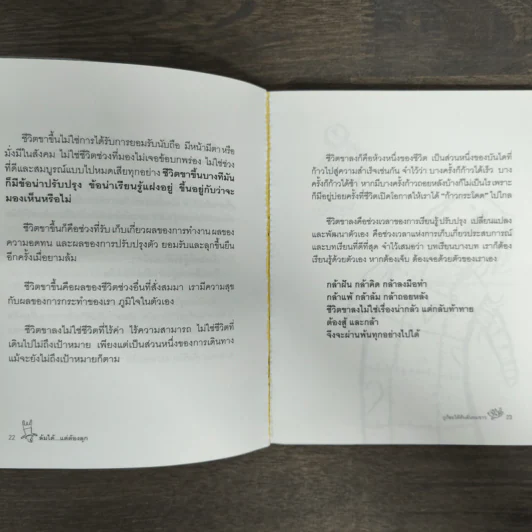 ชีวิตขาขึ้นไม่ใช่การได้รับการยอมรับนับถือ มีหน้ามีตาหรือ
มั่งมีในสังคม ไม่ใช่ชีวิตช่วงที่มองไม่เจอข้อบกพร่อง ไม่ใช่ช่วง
ที่ดีและสมบูรณ์แบบไปหมดเสียทุกอย่าง ชีวิตขาขึ้นบางทีมัน
ก็มีข้อน่าปรับปรุง ข้อน่าเรียนรู้แฝงอยู่ ขึ้นอยู่กับว่าจะ
มองเห็นหรือไม่
ชีวิตขาขึ้นก็คือช่วงที่รับ เก็บเกี่ยวผลของการทำงาน ผลของ
ความอดทน และผลของการปรับปรุงตัว ยอมรับและลุกขึ้นยืน
อีกครั้งเมื่อยามล้ม
ชีวิตขาขึ้นคือผลของชีวิตช่วงอื่นที่สั่งสมมา เรามีความสุข
กับผลของการกระทำของเรา ภูมิใจในตัวเอง
ชีวิตขาลงไม่ใช่ชีวิตที่ไร้ค่า ไร้ความสามารถ ไม่ใช่ชีวิตที่
เดินไปไม่ถึงเป้าหมาย เพียงแต่เป็นส่วนหนึ่งของการเดินทาง
แม้จะยังไม่ถึงเป้าหมายก็ตาม
22 ล้มได้...แต่ต้องลุก
ชีวิตขาลงก็คือห้วงหนึ่งของชีวิต เป็นส่วนหนึ่งของบันไดที่
ก้าวไปสู่ความสำเร็จเช่นกัน จำไว้ว่า บางครั้งก็ก้าวได้เร็ว บาง
ครั้งก็ก้าวได้ช้า หากมีบางครั้งก้าวถอยหลังบ้างก็ไม่เป็นไร เพราะ
ก็มีอยู่บ่อยครั้งที่ชีวิตเปิดโอกาสให้เราได้ "ก้าวกระโดด" ไปไกล
ชีวิตขาลงคือช่วงเวลาของการเรียนรู้ ปรับปรุง เปลี่ยนแปลง
และพัฒนาตัวเอง คือช่วงเวลาแห่งการเก็บเกี่ยวประสบการณ์
และบทเรียนที่ดีที่สุด จำไว้เสมอว่า บทเรียนบางบท เราก็ต้อง
เรียนรู้ด้วยตัวเอง หากต้องเจ็บ ต้องเจอด้วยตัวของเราเอง
กล้าฝัน กล้าคิด กล้าลงมือทำ
กล้าแพ้ กล้าล้ม กล้าถอยหลัง
ชีวิตขาลงไม่ใช่เรื่องน่ากลัว แต่กลับท้าทาย
ต้องสู้ และกล้า
จึงจะผ่านพ้นทุกอย่างไปได้
23